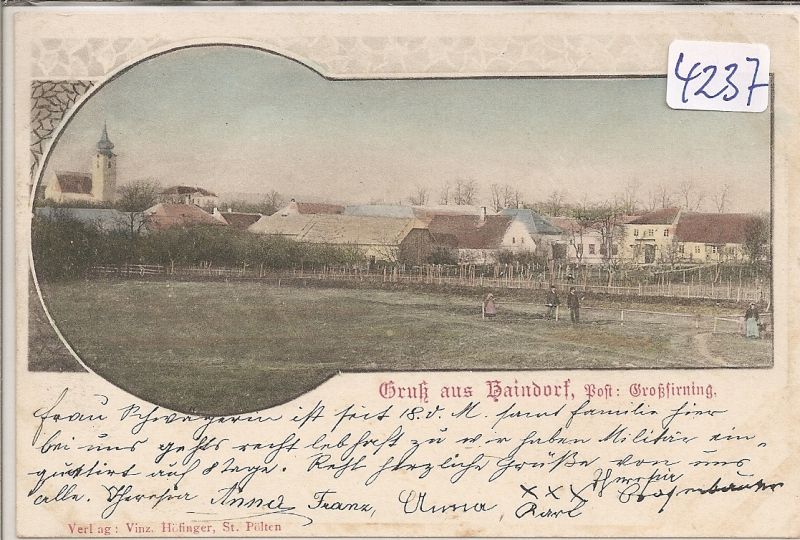 4237
Gruß aus Haindorf, Post: Großsirning.
Frau Schwägerin ist seit 18. d. M. samt Familie hier
bei uns gehts recht lebhaft zu wir haben Militär ein-
quatirt auf 8 Tage. Recht herzliche Grüße von uns
alle. Theresia Anna Franz, Anna, XXX Theresia
Karl
Verlag: Vinz. Höfinger, St. Pölten